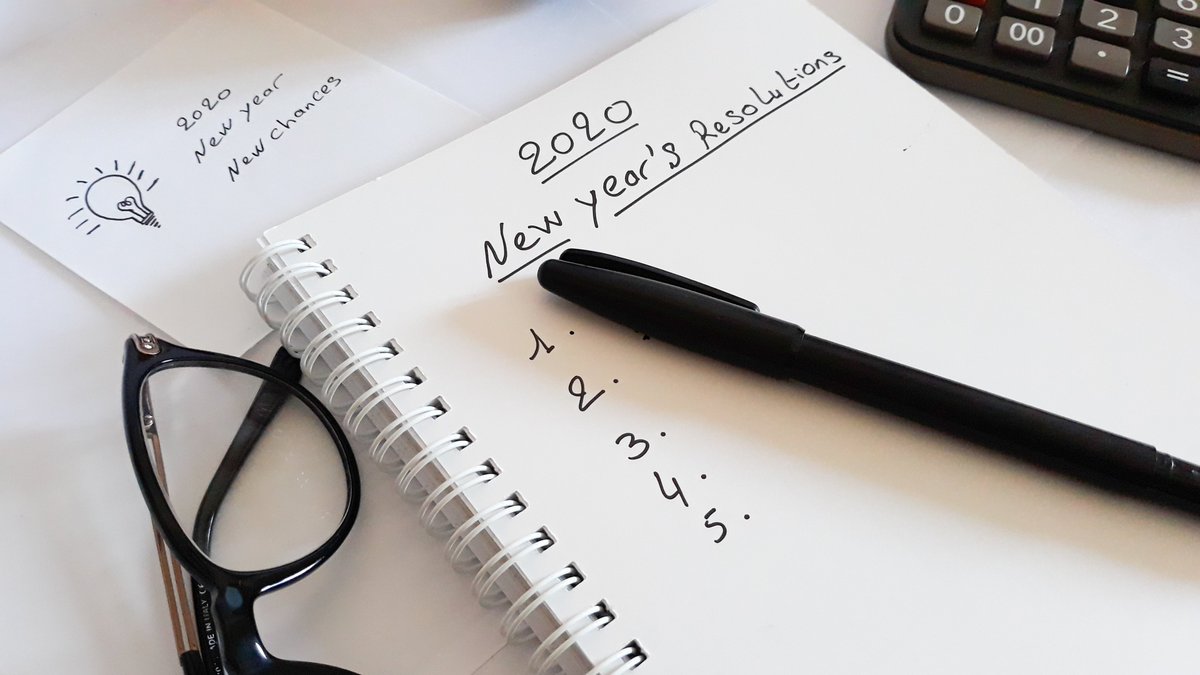 2020
New year
New chances
2020
New year's Resolutions
1.
2.
3.
4.
5.
0
00
1
2
.
3
6
=
MADE IN ITALY CE